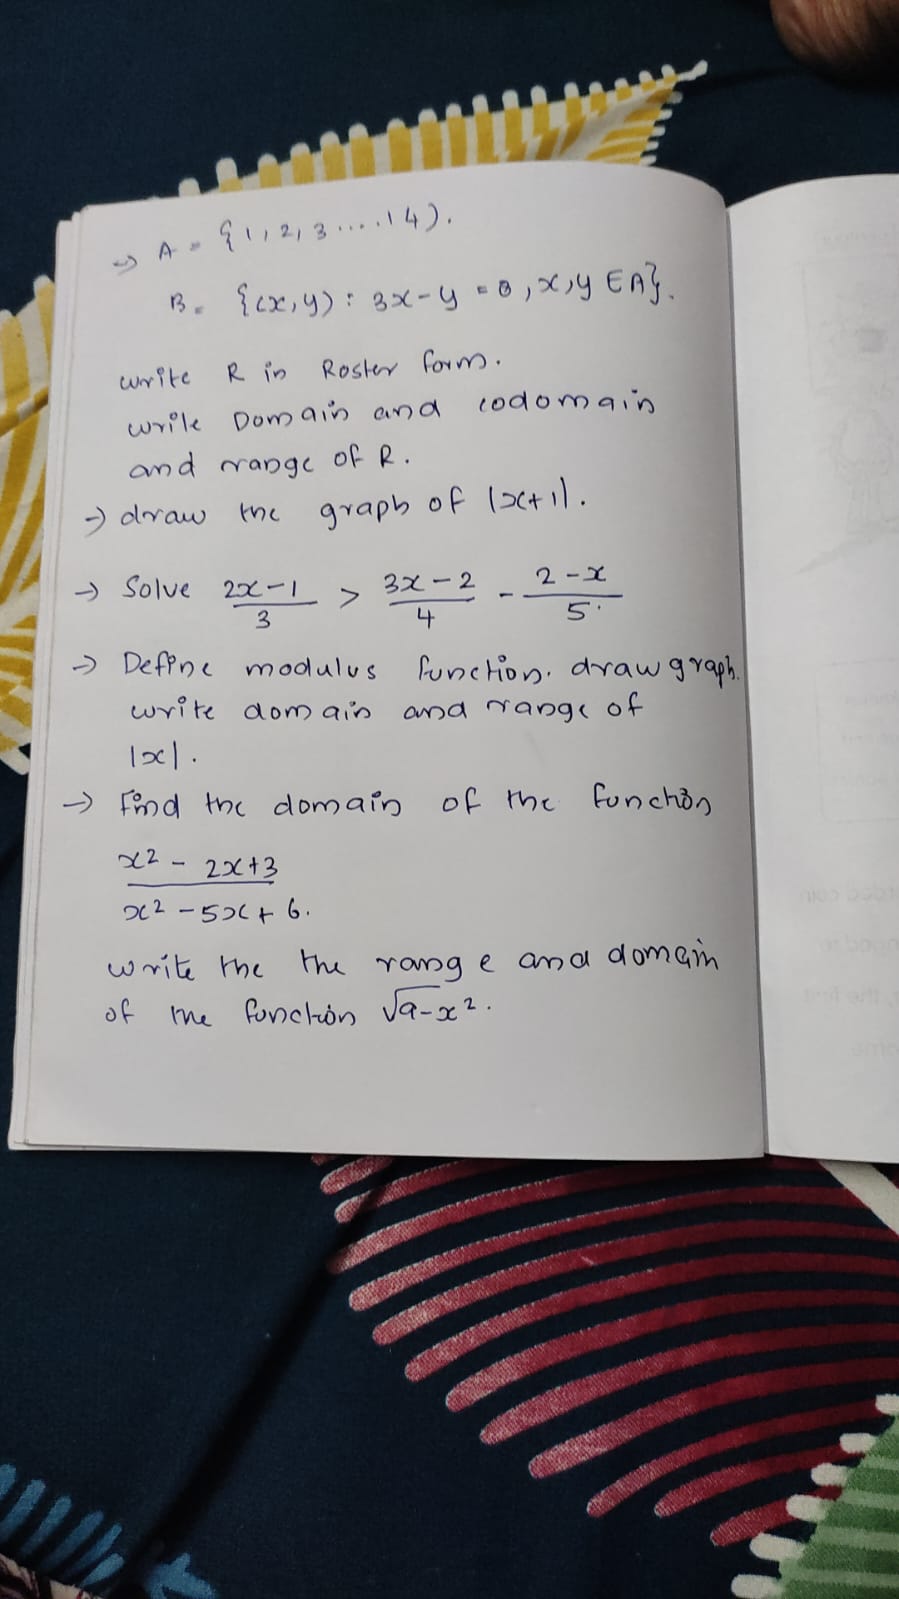 → A = {1, 2, 3 .... 14).
B = {(x, y) : 3x - y = 0, x, y ∈ A}.
write R in Roster form.
write Domain and codomain
and range of R.
→ draw the graph of |x+1|.
→ Solve (2x-1)/3 > (3x-2)/4 - (2-x)/5.
→ Define modulus function. draw graph.
write domain and range of
|x|.
→ Find the domain of the function
x2 - 2x+3
x2 - 5x + 6.
write the the range and domain
of the function √9-x2.